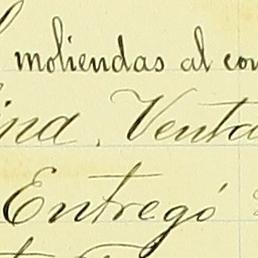 moliendas al con
ina. Venta
Entregó